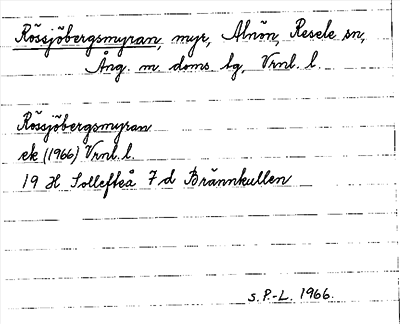 Rössjöbergsmyran, myr, Alnön, Resele sn,
Ång. m. doms lg, Vrnl. l.
Rössjöbergsmyran
ek (1966) Vrnl. l.
19 H Sollefteå 7 d Brännkullen
s. P.-L. 1966.